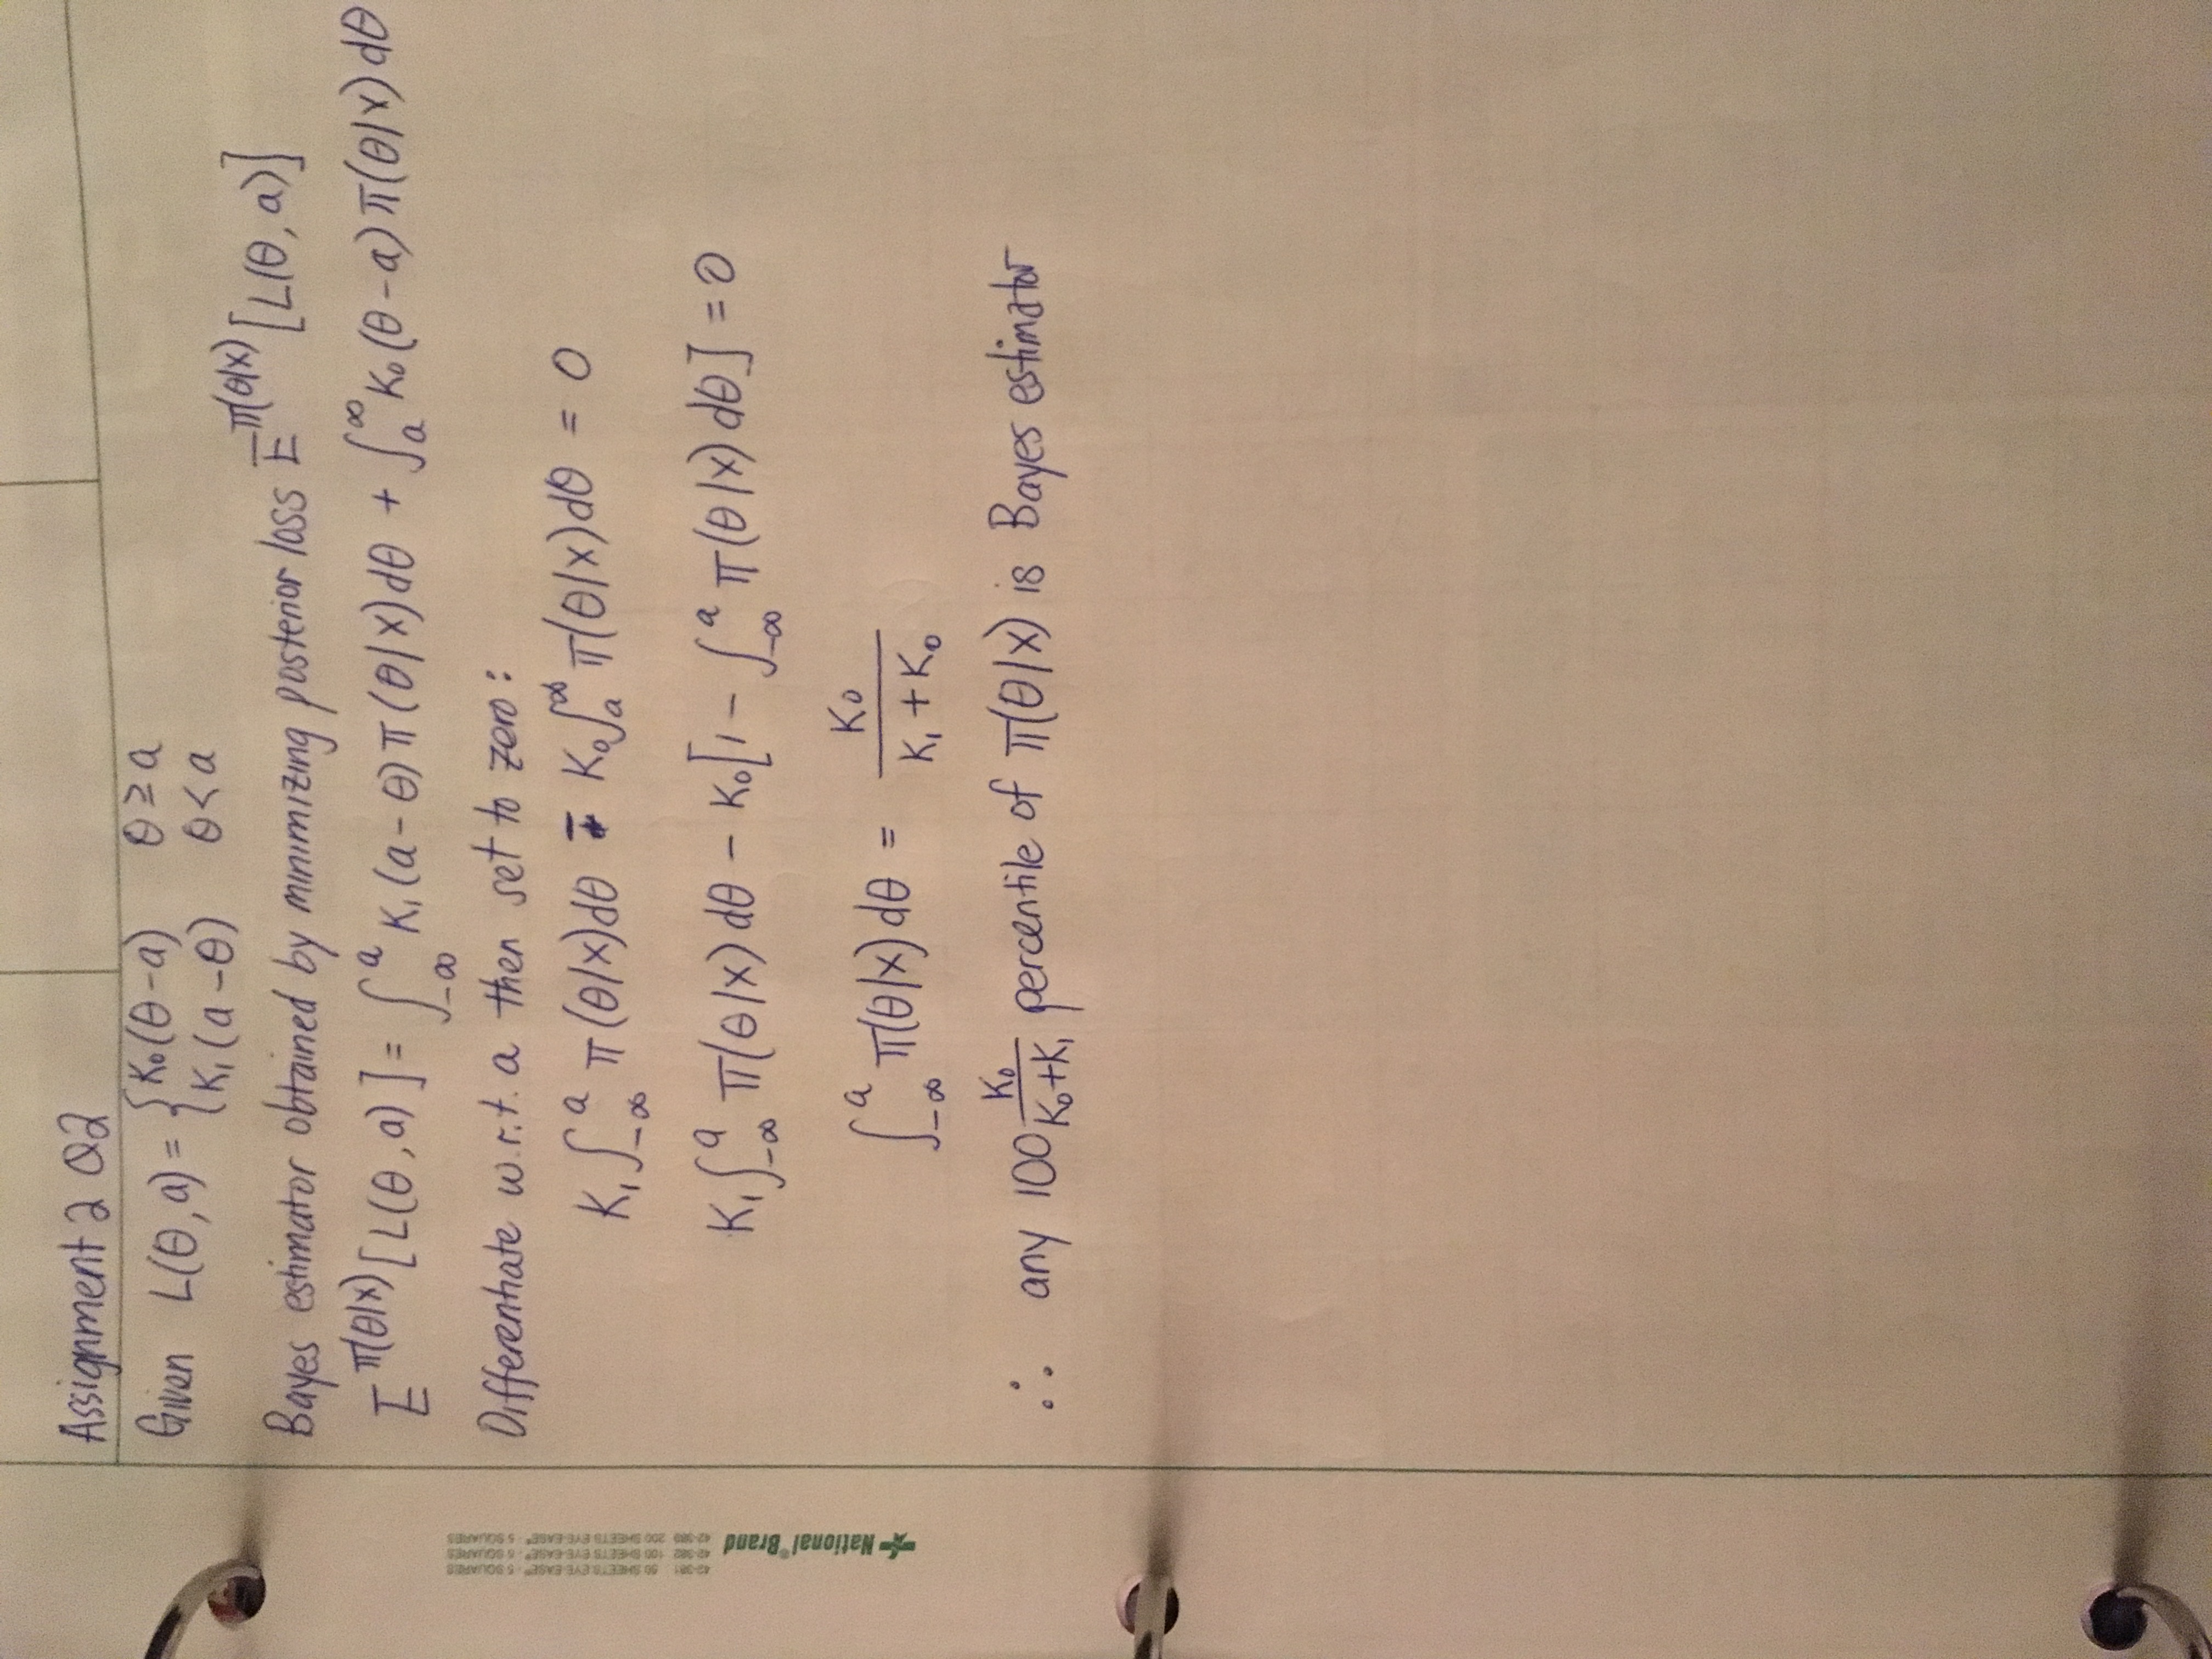 Assignment 2 Q2
Given L(θ,a) = { K₀(θ-a) θ ≥ a
K₁(a-θ) θ < a
Bayes estimator obtained by minimizing posterior loss E^π(θ|x) [L(θ,a)]
E^π(θ|x) [L(θ,a)] = ∫_{-∞}^{a} K₁(a-θ)π(θ|x)dθ + ∫_{a}^{∞} K₀(θ-a)π(θ|x)dθ
Differentiate w.r.t. a then set to zero:
K₁∫_{-∞}^{a} π(θ|x)dθ - K₀∫_{a}^{∞} π(θ|x)dθ = 0
K₁∫_{-∞}^{a} π(θ|x)dθ - K₀[1 - ∫_{-∞}^{a} π(θ|x)dθ] = 0
∫_{-∞}^{a} π(θ|x)dθ = K₀/(K₁+K₀)
∴ any 100 K₀/(K₀+K₁) percentile of π(θ|x) is Bayes estimator
42-381 50 SHEETS EYE-EASE® 5 SQUARES
42-382 100 SHEETS EYE-EASE® 5 SQUARES
42-389 200 SHEETS EYE-EASE® 5 SQUARES
National®Brand